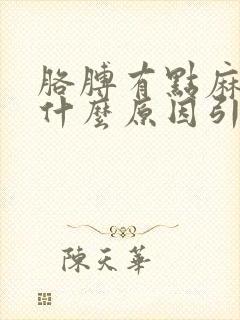 胳膊有點麻
什麼原因引
陳天華